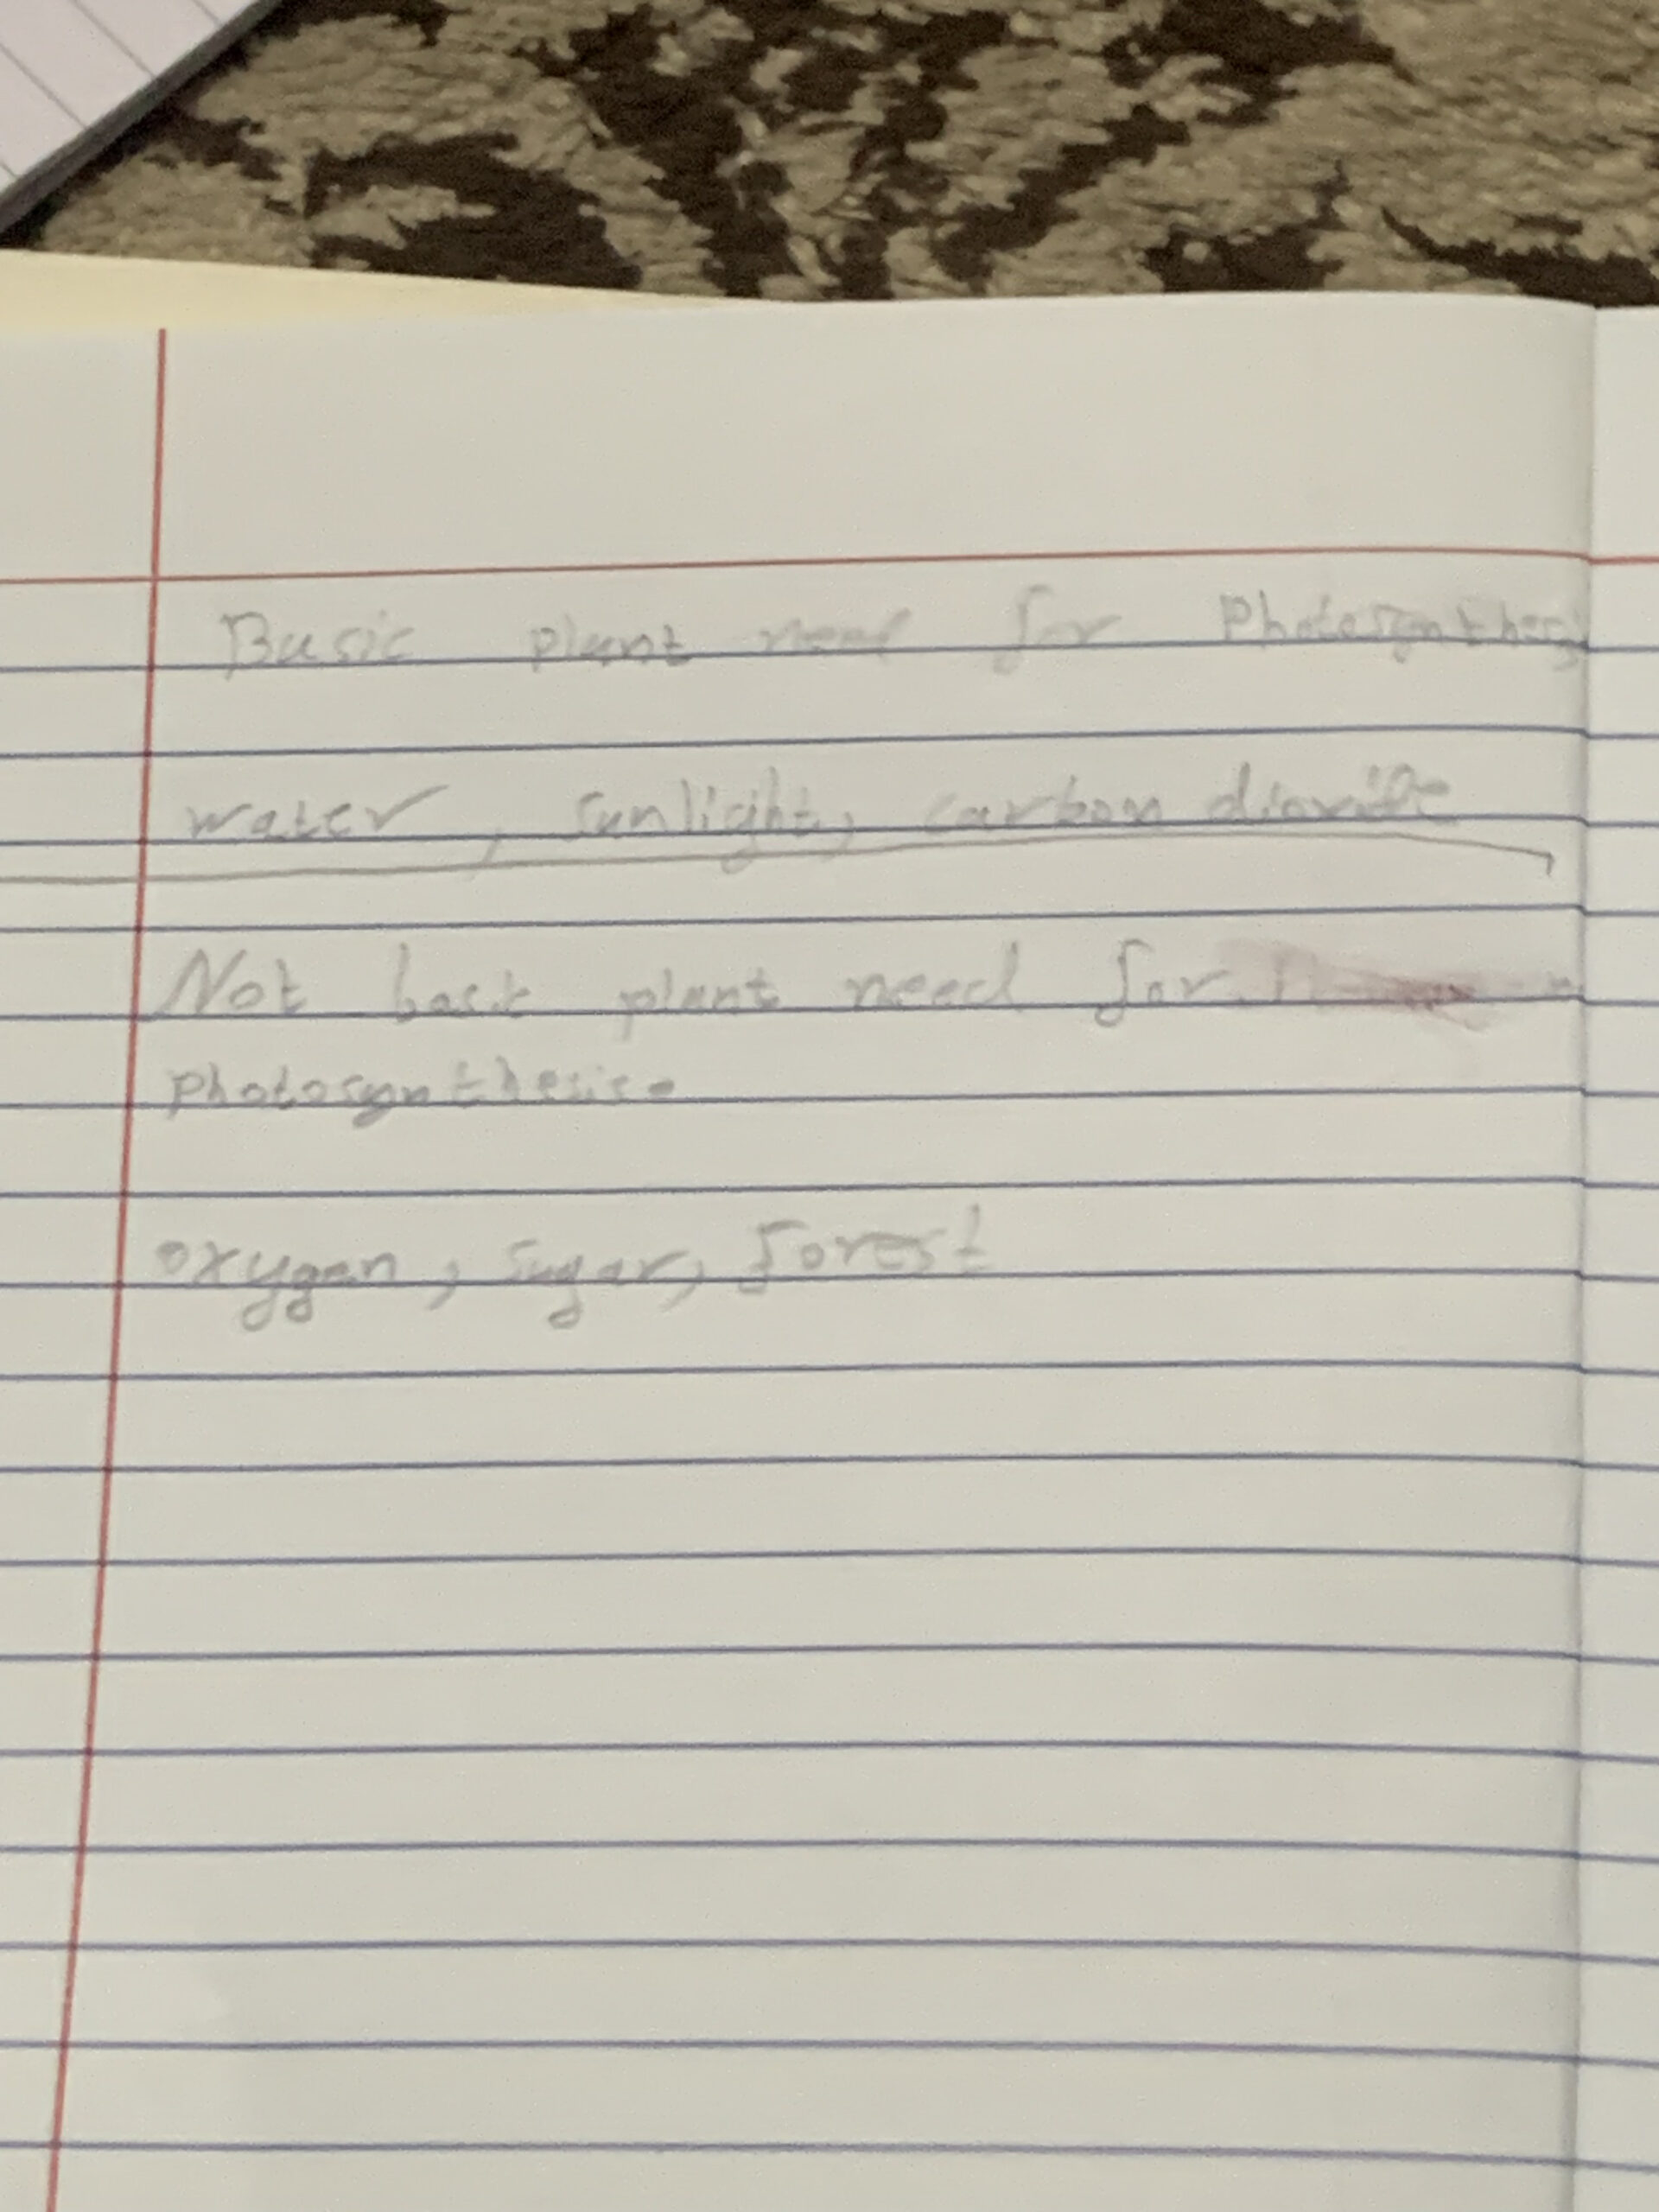 Basic plant need for Photosynthesis
water, sunlight, carbon dioxide
Not basic plant need for
photosynthesis.
oxygen, sugar, forest